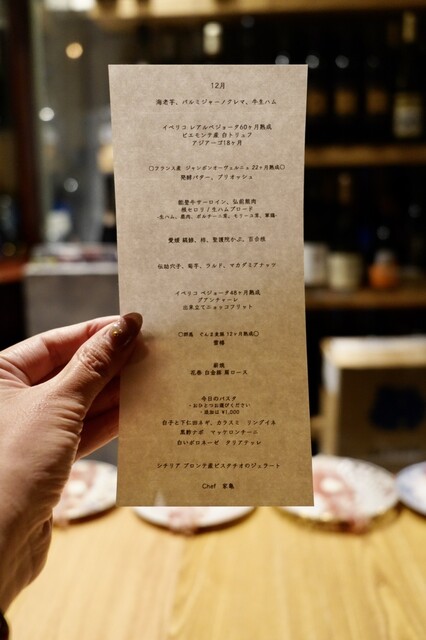 12月
海老芋、パルミジャーノクレマ、牛生ハム
イベリコ レアルベジョータ60ヶ月熟成
ピエモンテ産 白トリュフ
アジアーゴ18ヶ月
○フランス産 ジャンボンオーヴェルニュ 22ヶ月熟成○
発酵バター、ブリオッシュ
能登牛サーロイン、弘前熊肉
根セロリ / 生ハムブロード
愛媛 真鯛、柿、聖護院かぶ、百合根
伝助穴子、菊芋、ラルド、マカダミアナッツ
イベリコ ベジョータ48ヶ月熟成
グアンチャーレ
出来立てニョッコフリット
○群馬 ぐんま食麗 12ヶ月熟成○
薪焼
花巻 白金豚 肩ロース
今日のパスタ
・おひとつお選びください
・追加は ¥1,000
白子と下仁田ネギ、カラスミ リングイネ
黒酢ナポ マッケロンチーニ
白いボロネーゼ タリアテッレ
シチリア ブロンテ産ピスタチオのジェラート
Chef 家亀